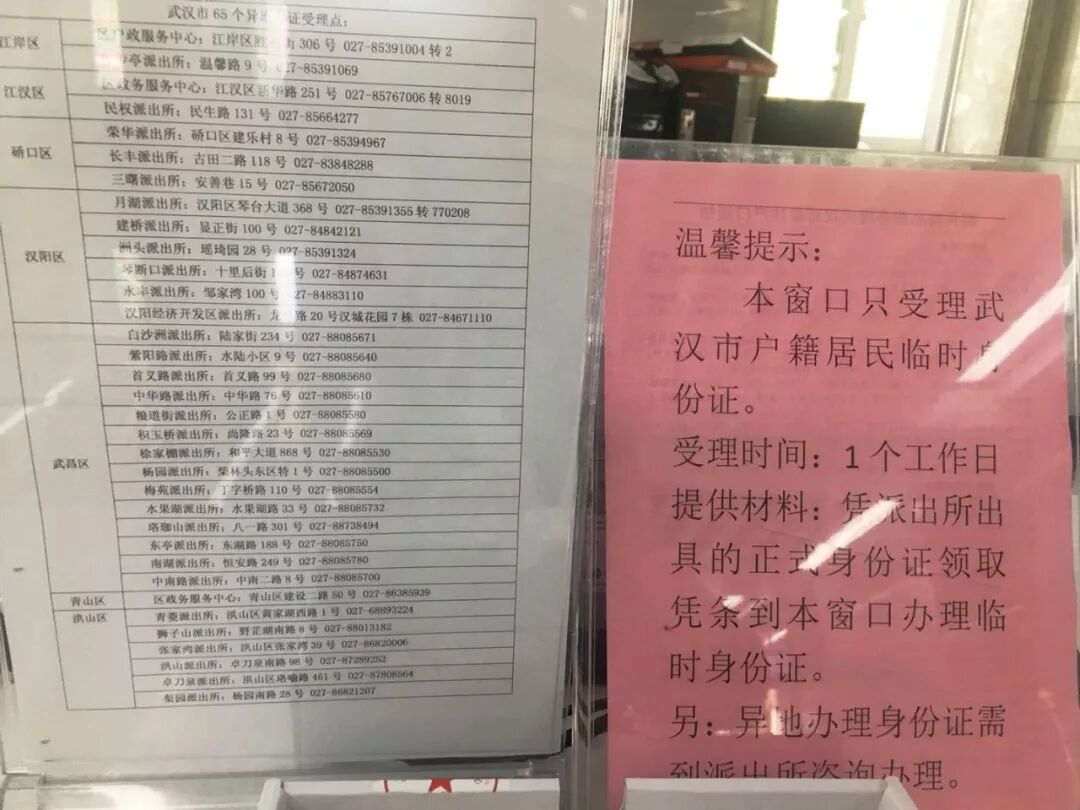 武汉市 65 个异地 证受理点:
江岸区
政服务中心: 江岸区胜 街 306 号 027-85391004 转 2
亭派出所: 温馨路 9 号 027-85391069
江汉区
区政务服务中心: 江汉区新华路 251 号 027-85767006 转 8019
民权派出所: 民生路 131 号 027-85664277
硚口区
荣华派出所: 硚口区建乐村 8 号 027-85394967
长丰派出所: 古田二路 118 号 027-83848288
三曙派出所: 安善巷 15 号 027-85672050
汉阳区
月湖派出所: 汉阳区琴台大道 368 号 027-85391355 转 770208
建桥派出所: 显正街 100 号 027-84842121
洲头派出所: 瑶琦园 28 号 027-85391324
琴断口派出所: 十里后街 1 号 027-84874631
永丰派出所: 邹家湾 100 号 027-84883110
汉阳经济开发区派出所: 龙 路 20 号汉城花园 7 栋 027-84671110
武昌区
白沙洲派出所: 陆家街 234 号 027-88085671
紫阳路派出所: 水陆小区 9 号 027-88085640
首义路派出所: 首义路 99 号 027-88085680
中华路派出所: 中华路 76 号 027-88085610
粮道街派出所: 公正路 1 号 027-88085580
积玉桥派出所: 尚隆路 23 号 027-88085569
徐家棚派出所: 和平大道 868 号 027-88085530
杨园派出所: 柴林头东区特 1 号 027-88085500
梅苑派出所: 丁字桥路 110 号 027-88085554
水果湖派出所: 水果湖路 33 号 027-88085732
珞珈山派出所: 八一路 301 号 027-88738494
东亭派出所: 东湖路 188 号 027-88085750
南湖派出所: 恒安路 249 号 027-88085780
中南路派出所: 中南二路 8 号 027-88085700
青山区
区政务服务中心: 青山区建设二路 50 号 027-86385939
洪山区
青菱派出所: 洪山区黄家湖西路 1 号 027-68893224
狮子山派出所: 野芷湖南路 8 号 027-88013182
张家湾派出所: 洪山区张家湾 39 号 027-86820006
洪山派出所: 卓刀泉南路 98 号 027-87289252
卓刀泉派出所: 洪山区珞喻路 461 号 027-87808564
梨园派出所: 杨园南路 28 号 027-86821207
温馨提示:
本窗口只受理武
汉市户籍居民临时身
份证。
受理时间: 1 个工作日
提供材料: 凭派出所出
具的正式身份证领取
凭条到本窗口办理临
时身份证。
另: 异地办理身份证需
到派出所咨询办理。